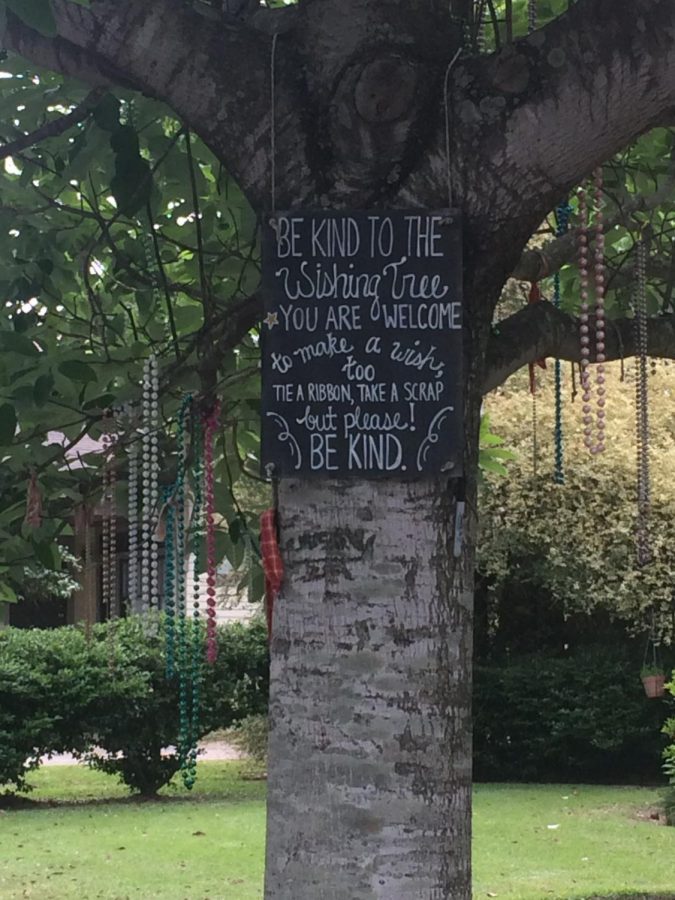 BE KIND TO THE
Wishing Tree
YOU ARE WELCOME
to make a wish,
too
TIE A RIBBON, TAKE A SCRAP
but please!
BE KIND.